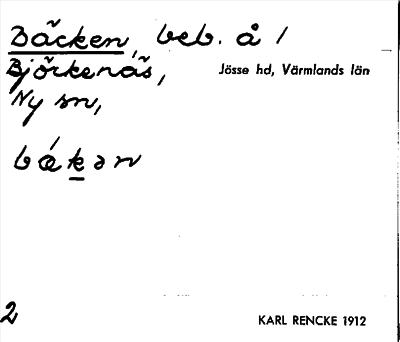 Bäcken, beb. å 1
Björkenäs, Jösse hd, Värmlands län
Ny sn,
bǽkən
2
KARL RENCKE 1912